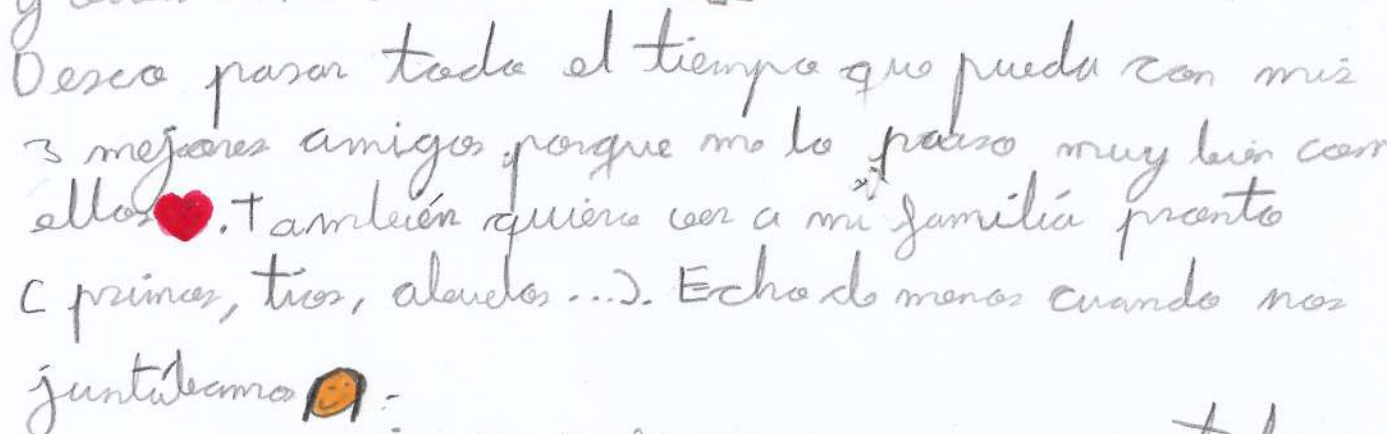 Deseo pasar todo el tiempo que pueda con mis
3 mejores amigos porque me lo paso muy bien con
ellos❤️. También quiero ver a mi familia pronto
( primos, tíos, abuelos...). Echo de menos cuando nos
juntábamos